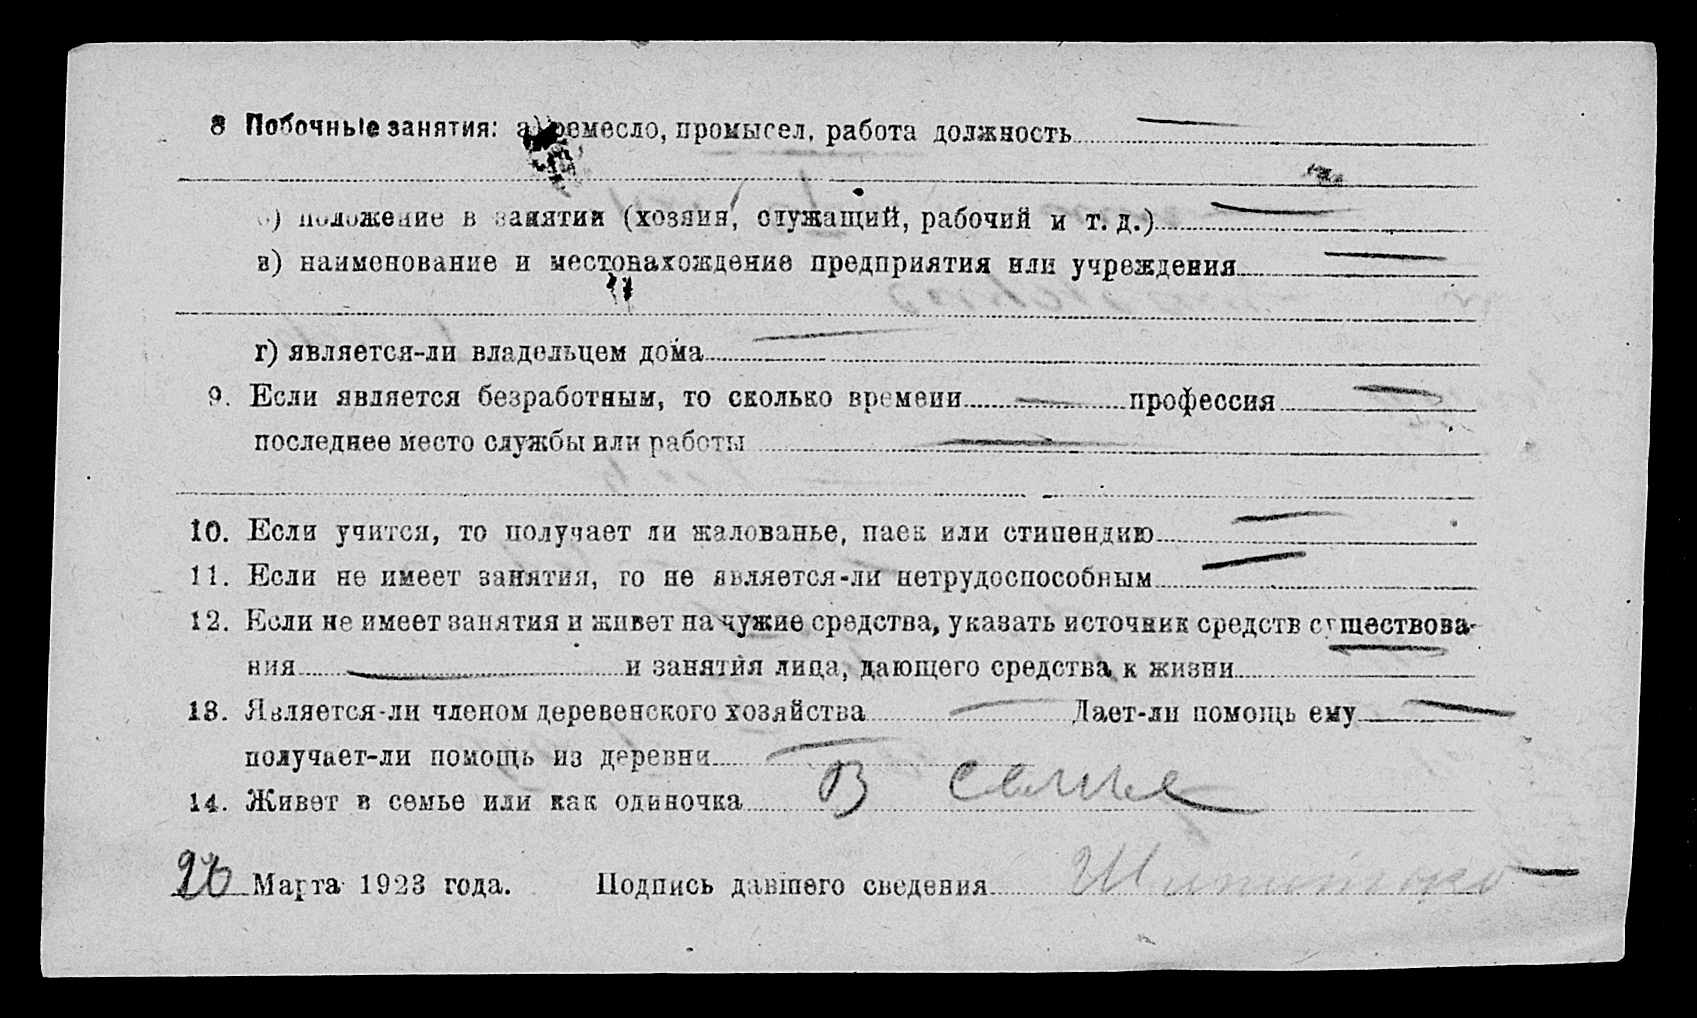 8 Побочные занятия: а) ремесло, промысел, работа должность
б) положение в занятии (хозяин, служащий, рабочий и т. д.)
в) наименование и местонахождение предприятия или учреждения
г) является-ли владельцем дома
9. Если является безработным, то сколько времени профессия
последнее место службы или работы
10. Если учится, то получает ли жалованье, паек или стипендию
11. Если не имеет занятия, то не является-ли нетрудоспособным
12. Если не имеет занятия и живет на чужие средства, указать источник средств существова-
ния и занятия лица, дающего средства к жизни
13. Является-ли членом деревенского хозяйства Дает-ли помощь ему
получает-ли помощь из деревни
14. Живет в семье или как одиночка В семье
26 Марта 1923 года. Подпись давшего сведения